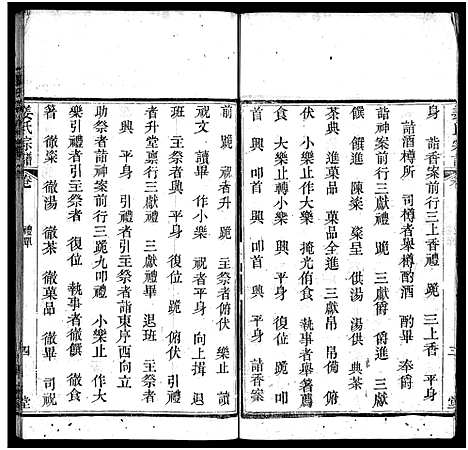 姜氏宗譜 卷
三
堂
身 詣香案前行三上香禮 跪 三上香 平身
詣酒樽所 司樽者舉樽酌酒 酌畢 奉爵
詣神案前行三獻禮 跪 三獻爵 爵進 三獻
饌 饌進 陳粢 粢呈 供湯 湯供 典茶
茶典 進菓品 菓品全進 三獻帛 帛獻 俯
伏 小樂止作大樂 掩光侑食 執事者舉著薦
食 大樂止轉小樂 興 平身 復位 跪 叩
首 興 叩首 興 叩首 興 平身 詣香案
前 跪 司祝者升 跪 主祭者俯伏 樂止 讀
祝文 讀畢 作小樂 祝者平身 向上揖 退
班 主祭者興 平身 復位 跪 俯伏 與祭
者升堂應行三獻禮 三獻禮畢 退班 主祭者
興 平身 引禮者引主祭者詣東席西向立
助祭者詣神案前行三跪九叩禮 小樂止 作大
樂 引禮者引主祭者 復位 執事者徹饌 徹食
著 徹粢 徹湯 徹茶 徹菓品 徹畢 司祝
姜氏宗譜 卷 禮單
四
堂